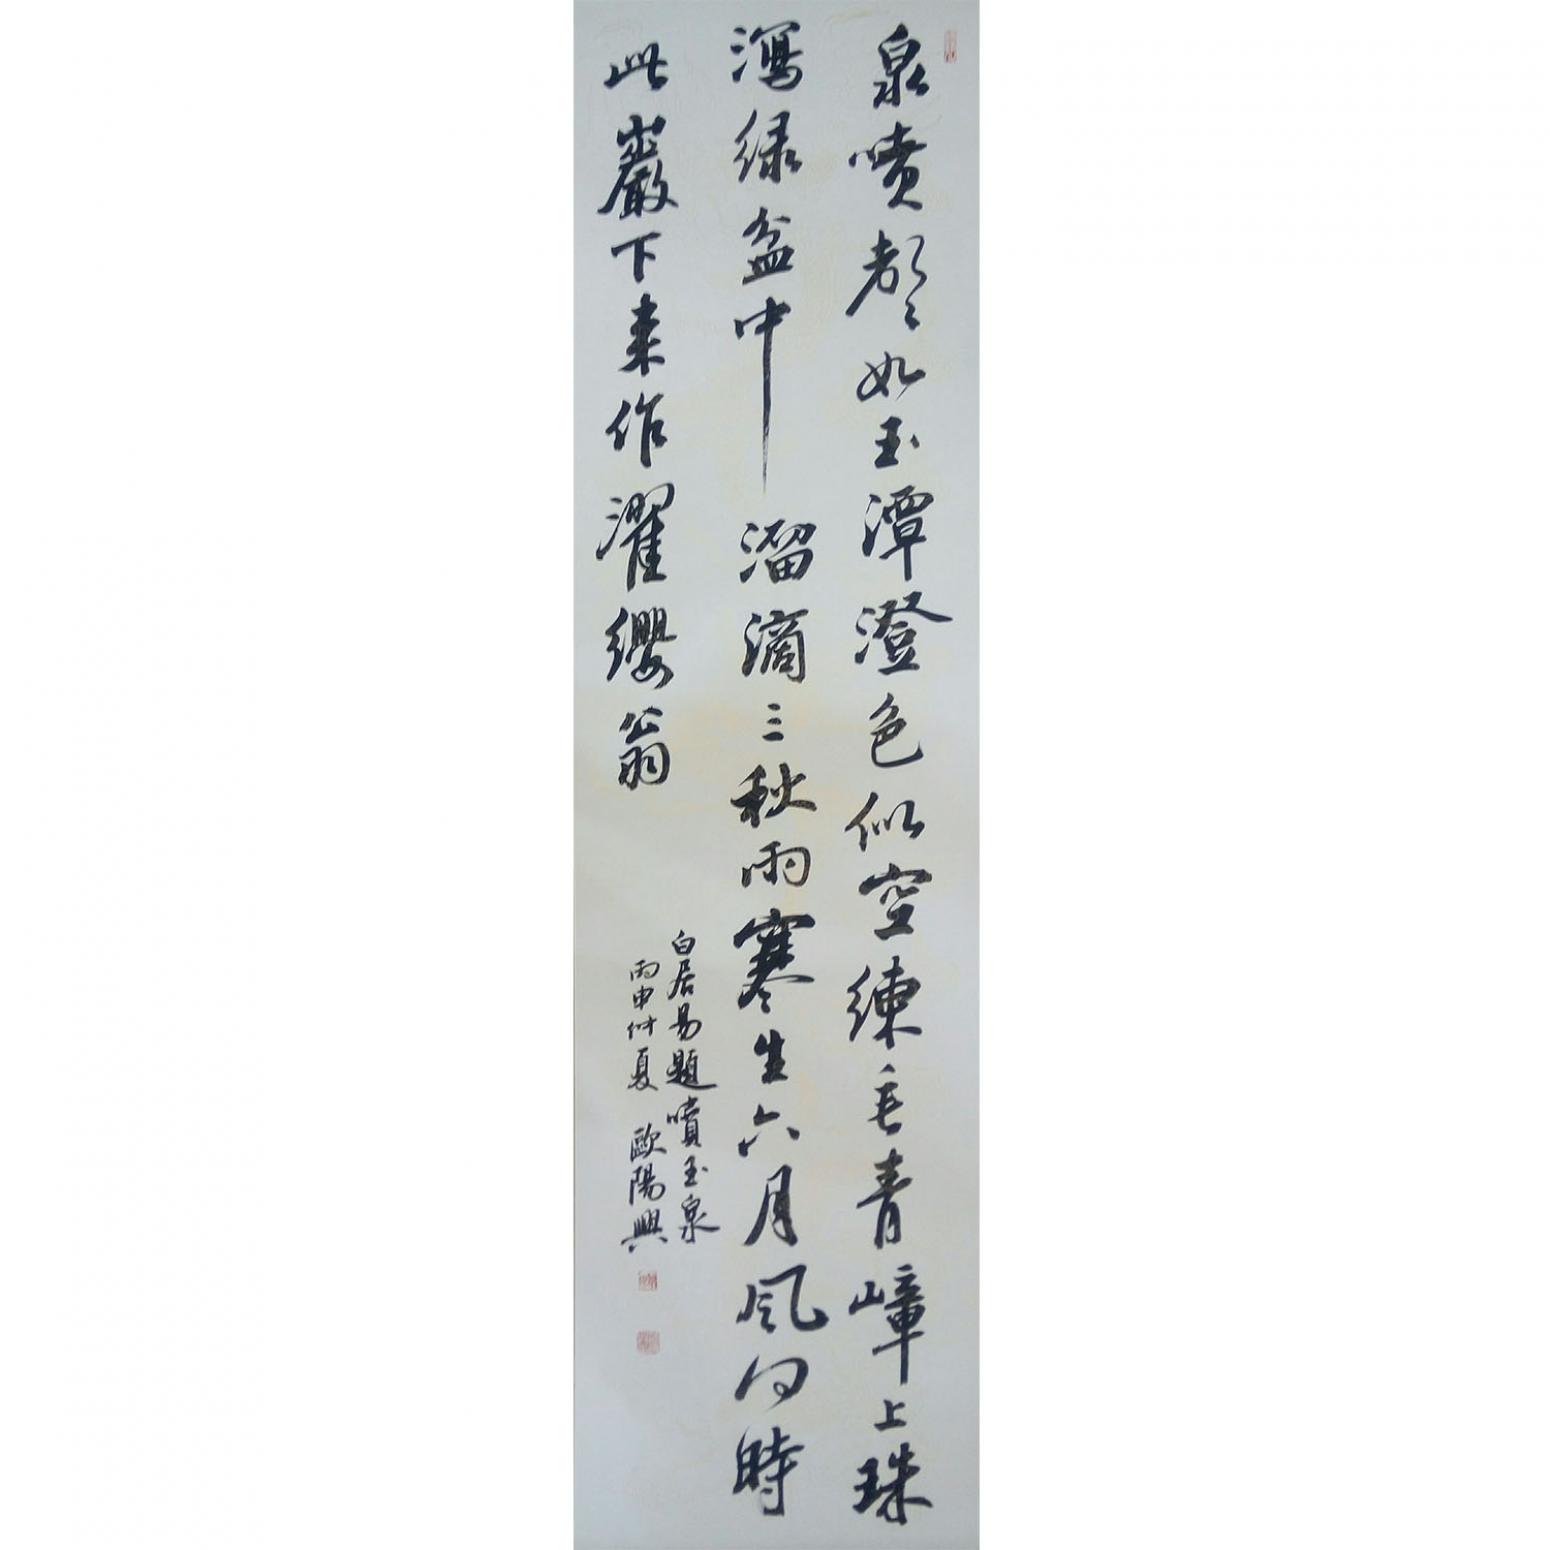 泉喷聲如玉潭澄色似空練垂青嶂上珠
瀉绿盆中溜滴三秋雨寒生六月风何時
此巖下来作濯纓翁
白居易題噴玉泉
丙申仲夏 歐陽興